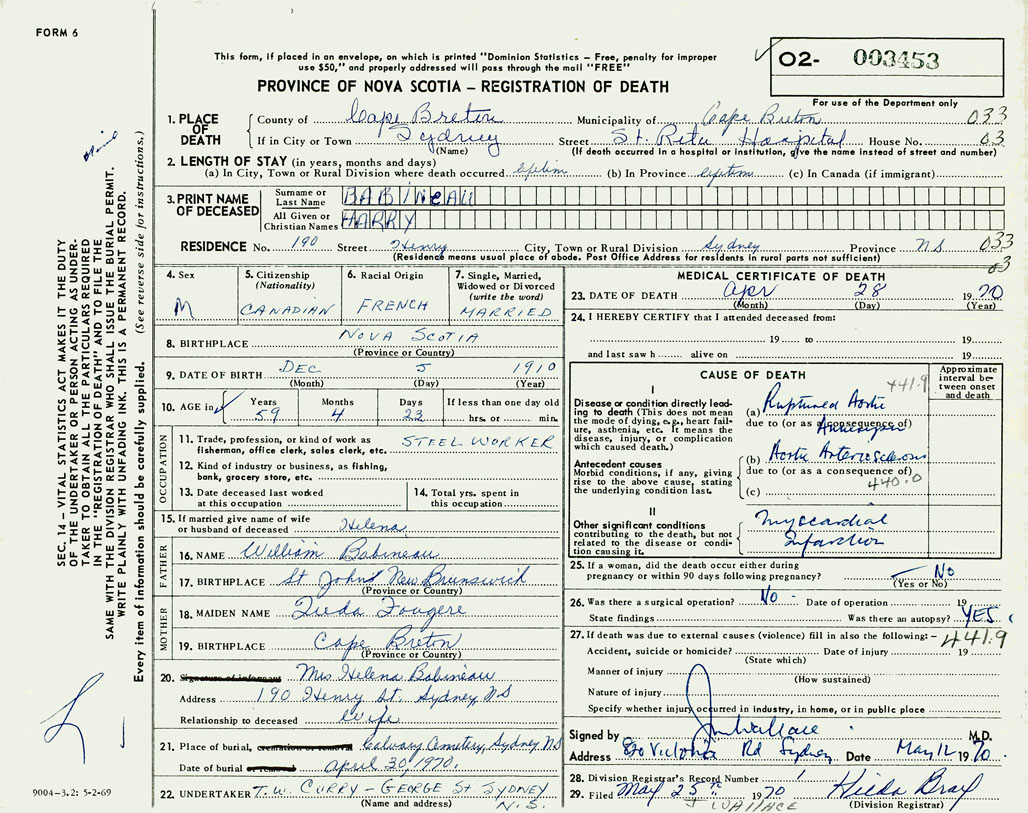 FORM 6
This form, if placed in an envelope, on which is printed "Dominion Statistics – Free, penalty for improper
use $50," and properly addressed will pass through the mail "FREE"
PROVINCE OF NOVA SCOTIA – REGISTRATION OF DEATH
O2- 003453
For use of the Department only
1. PLACE OF DEATH
County of Cape Breton Municipality of Cape Breton 033
If in City or Town Sydney Street St. Rita Hospital House No. 03
(Name) (If death occurred in a hospital or institution, give the name instead of street and number)
2. LENGTH OF STAY (in years, months and days)
(a) In City, Town or Rural Division where death occurred (b) In Province (c) In Canada (if immigrant)
3. PRINT NAME OF DECEASED
Surname or Last Name BABINEAU
All Given or Christian Names HARRY
RESIDENCE No. 190 Street Henry City, Town or Rural Division Sydney Province N S 033
(Residence means usual place of abode. Post Office Address for residents in rural parts not sufficient) 03
4. Sex M
5. Citizenship (Nationality) CANADIAN
6. Racial Origin FRENCH
7. Single, Married, Widowed or Divorced (write the word) MARRIED
8. BIRTHPLACE NOVA SCOTIA
(Province or Country)
9. DATE OF BIRTH DEC 5 1910
(Month) (Day) (Year)
10. AGE in Years 59 Months 4 Days 23 If less than one day old hrs. or min.
OCCUPATION
11. Trade, profession, or kind of work as fisherman, office clerk, sales clerk, etc. STEEL WORKER
12. Kind of industry or business, as fishing, bank, grocery store, etc.
13. Date deceased last worked at this occupation
14. Total yrs. spent in this occupation
15. If married give name of wife or husband of deceased Helena
FATHER
16. NAME William Babineau
17. BIRTHPLACE St John's New Brunswick
(Province or Country)
MOTHER
18. MAIDEN NAME Fougere
19. BIRTHPLACE Cape Breton
(Province or Country)
20. Signature of informant Mrs Helena Babineau
Address 190 Henry St. Sydney, N S
Relationship to deceased Wife
21. Place of burial, Calvary Cemetery, Sydney N S
Date of burial April 30, 1970.
22. UNDERTAKER T.W. CURRY – GEORGE St SYDNEY
(Name and address) N. S.
MEDICAL CERTIFICATE OF DEATH
23. DATE OF DEATH Apr 28 1970
(Month) (Day) (Year)
24. I HEREBY CERTIFY that I attended deceased from:
19 to 19
and last saw h alive on 19
CAUSE OF DEATH
Approximate interval between onset and death
I
441.9
Disease or condition directly leading to death (This does not mean the mode of dying, e.g., heart failure, asthenia, etc. It means the disease, injury, or complication which caused death.)
(a) Ruptured Aortic
due to (or as a consequence of) Aneurysm
Antecedent causes
Morbid conditions, if any, giving rise to the above cause, stating the underlying condition last.
(b) Aortic Arteriosclerosis
due to (or as a consequence of)
(c) 440.0
II
Other significant conditions contributing to the death, but not related to the disease or condition causing it.
Myocardial
Infarction
25. If a woman, did the death occur either during pregnancy or within 90 days following pregnancy? No
(Yes or No)
26. Was there a surgical operation? No Date of operation 19
State findings Was there an autopsy? YES
27. If death was due to external causes (violence) fill in also the following: – 441.9
Accident, suicide or homicide? Date of injury 19
(State which)
Manner of injury
(How sustained)
Nature of injury
Specify whether injury occurred in industry, in home, or in public place
Signed by J Wallace M.D.
Address Victoria Rd Sydney Date May 12 1970
28. Division Registrar's Record Number 1
29. Filed May 25th 1970 Hilda Bray
J WALLACE (Division Registrar)
SEC. 14 – VITAL STATISTICS ACT MAKES IT THE DUTY
OF THE UNDERTAKER OR PERSON ACTING AS UNDERTAKER TO OBTAIN ALL THE PARTICULARS REQUIRED
IN THE "REGISTRATION OF DEATH" AND TO FILE THE
SAME WITH THE DIVISION REGISTRAR WHO SHALL ISSUE THE BURIAL PERMIT.
WRITE PLAINLY WITH UNFADING INK. THIS IS A PERMANENT RECORD.
Every item of information should be carefully supplied. (See reverse side for instructions.)
9004-3.2: 5-2-69